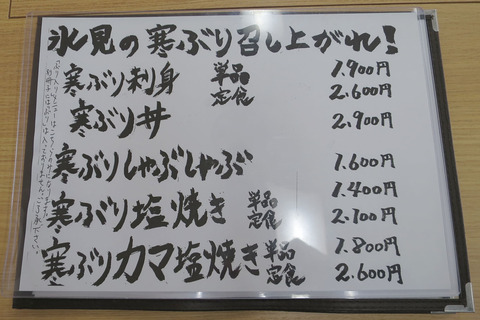 氷見の寒ぶり召し上がれ!
寒ぶり刺身 単品 1.900円
定食 2.600円
寒ぶり丼 2.900円
寒ぶりしゃぶしゃぶ 1.600円
寒ぶり塩焼き 単品 1.400円
定食 2.100円
寒ぶりカマ塩焼き 単品 1.800円
定食 2.600円